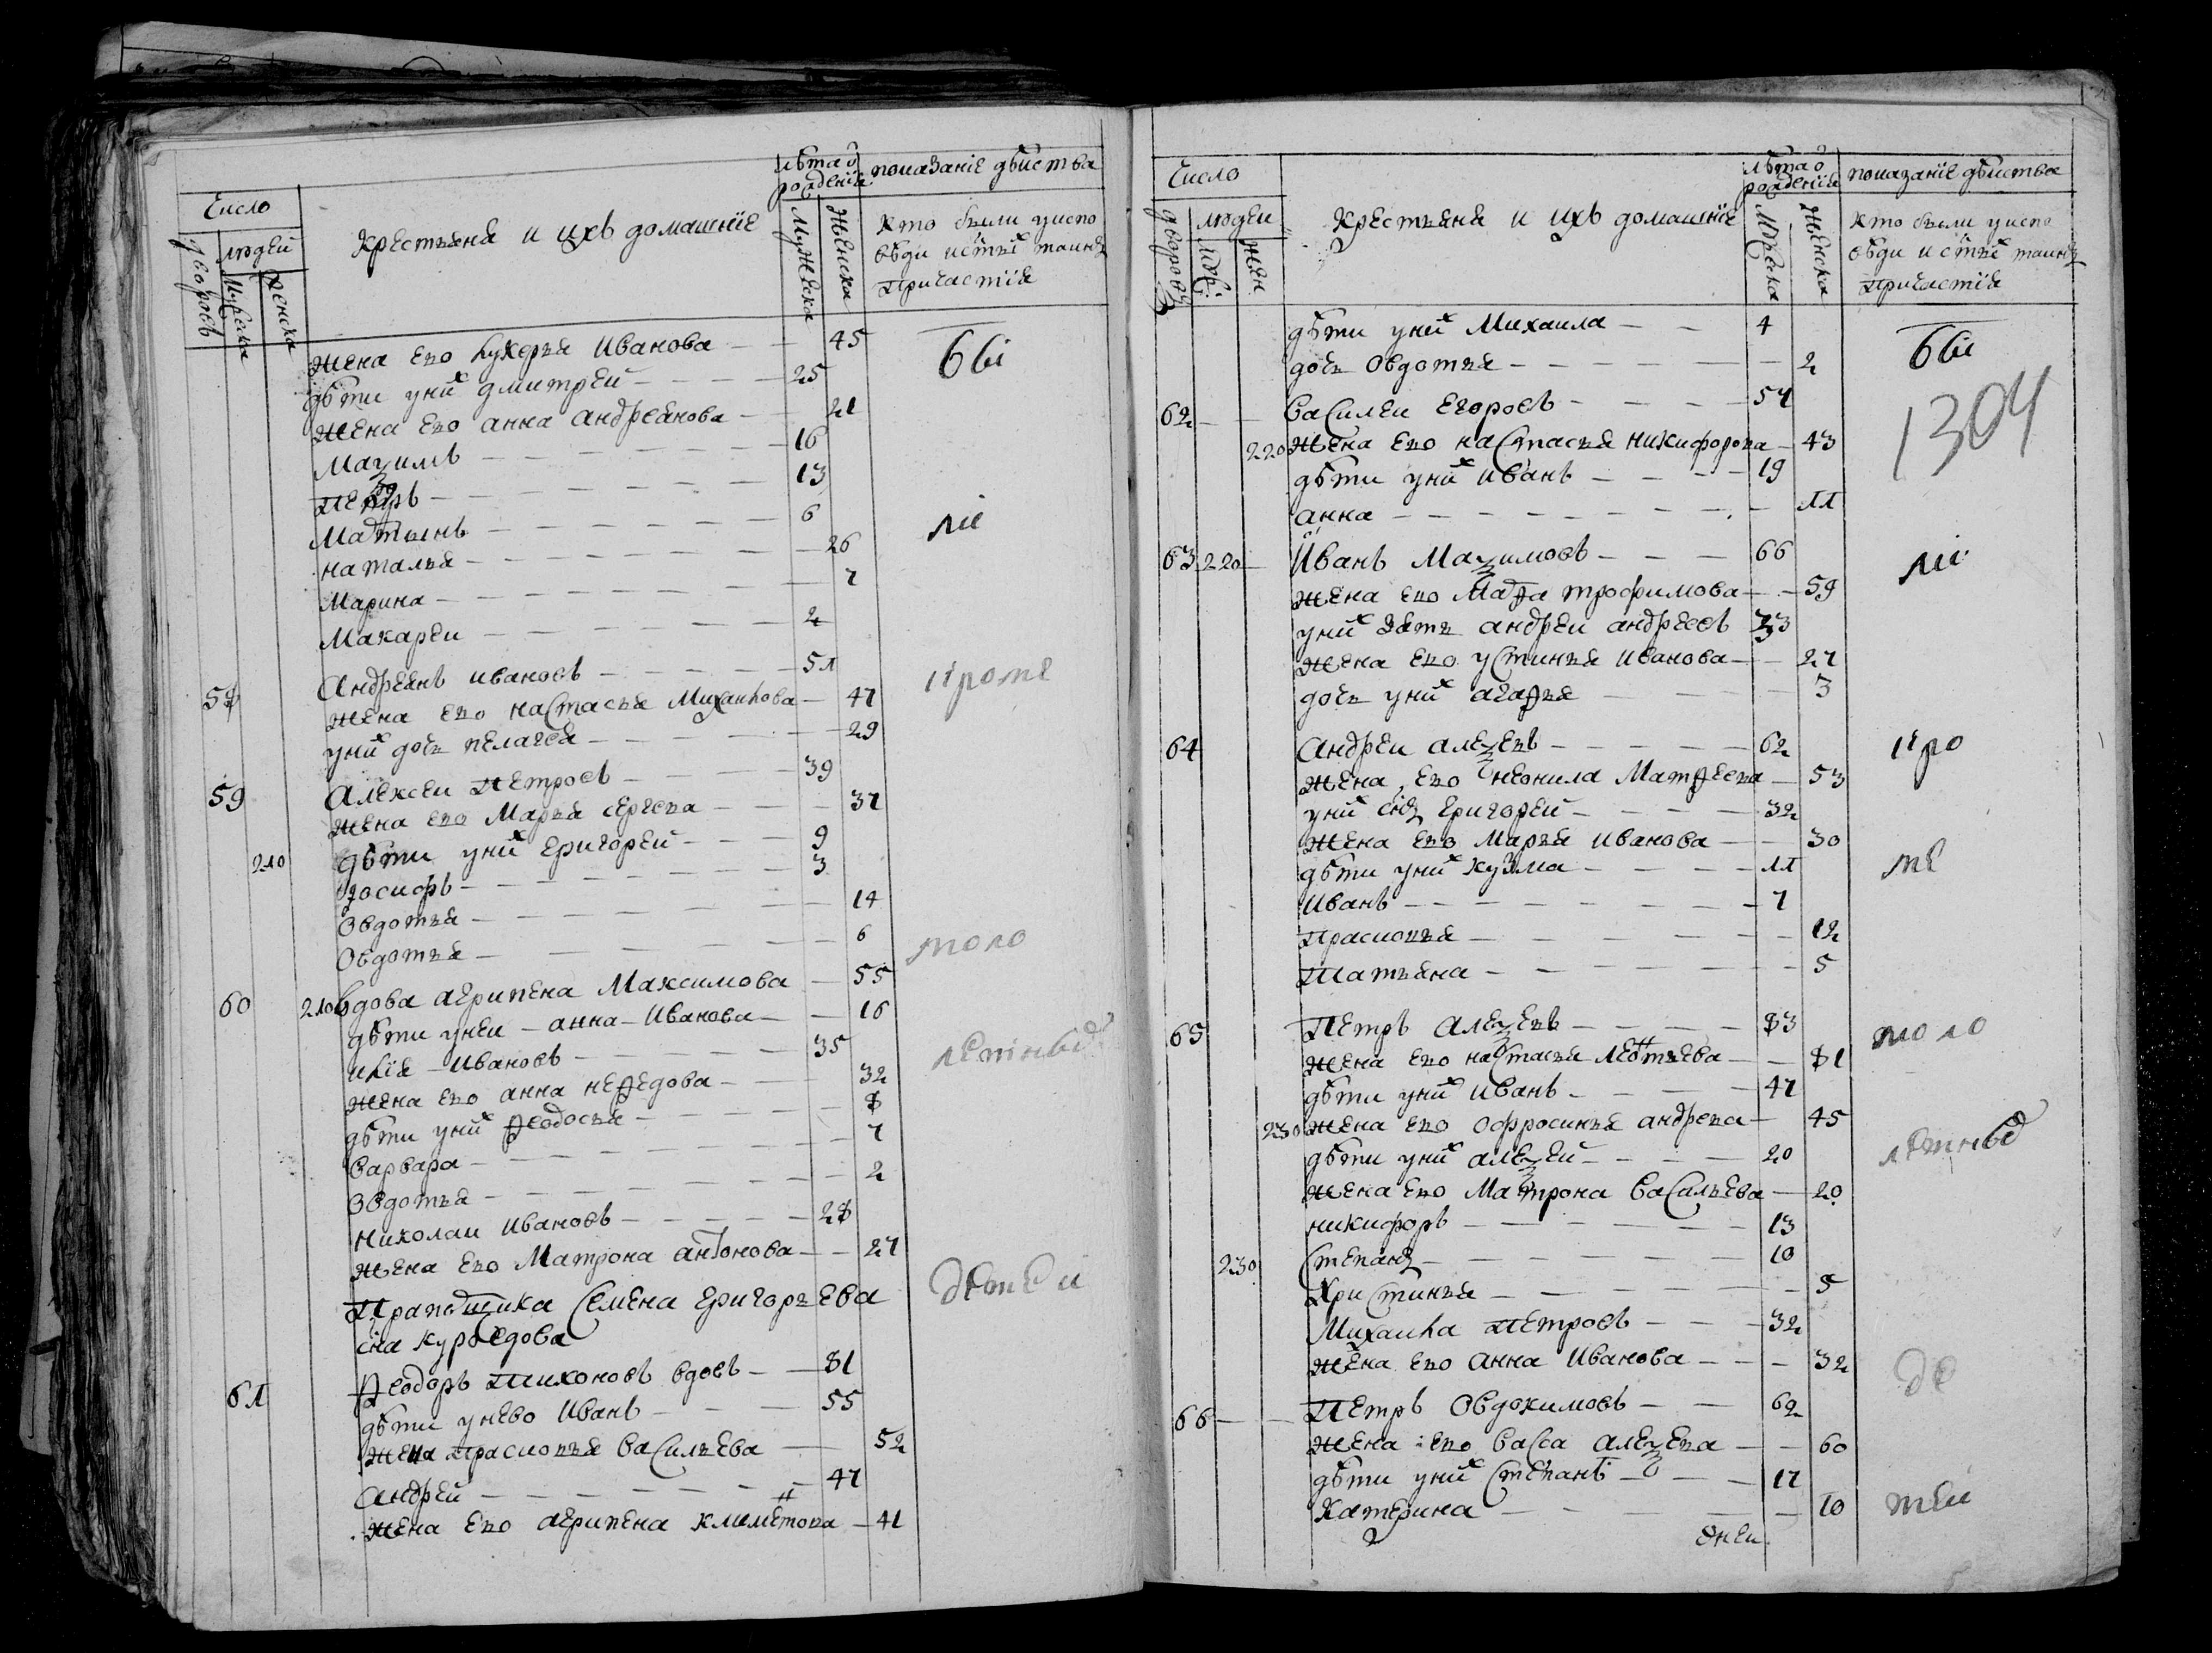 Число
людей
дворовъ
Мужска
женска
Крестьяня и ихъ домашние
лѣта ѿ рождения
Мужеска
Женска
показание дѣиства
кто были у испо
вѣди и с̃тых таинъ
причастия
жена ево Лукерья Иванова — 45
дѣти у них Дмитреи — 25
жена ево анна андреянова — 21
Маѯимъ — 16
Петръ — 13
Мартынъ — 6
наталья — 26
Марина — 7
Макареи — 2
58 Андреянъ ивановъ — 51
жена ево настасья Михаилова — 47
у них дочь пелагея — 29
59 Алексеи Петровъ — 39
жена ево Марья сергеева — 37
210 дѣти у них григореи — 9
Иосифъ — 3
Овдотья — 14
Овдотья — 6
60 210 вдова агрипена Максимова — 55
дѣти у неи — анна — Иванова — 16
илия — Ивановъ — 35
жена ево анна неѳедова — 32
дѣти у них ѳеодосья — 8
варвара — 7
Овдотья — 2
николаи ивановъ — 28
жена ево Матрона антонова — 27
Прапорщика Семена григорьева
с̃на куроедова
61 Ѳеодоръ Тихоновъ вдовъ — 81
дѣти у нево Иванъ — 55
жена прасковья Васильева — 52
андреи — 47
жена ево агрипена климентова — 41
бы
ли
кроме
мало
летныхъ
детеи
Число
людеи
дворовъ
муж:
жен
Крестьяня и ихъ домашние
лѣта ѿ рождения
Мужеска
Женска
показание дѣиства
кто были у испо
вѣди и с̃тых таинъ
причастия
дѣти у них Михаила — 4
дочь Овдотья — 2
62 Василеи Егоровъ — 54
220 жена ево настасья никифорова — 43
дѣти у них иванъ — 19
анна — 11
63 220 Иванъ Маѯимовъ — 66
жена ево Марѳа трофимова — 59
у них зять андреи андреевъ 33
жена ево устинья иванова — 27
дочь у них агаѳья — 3
64 андреи алеѯевъ — 62
жена ево неонила Матѳеева — 53
у них с̃нъ григореи — 32
жена ево марья иванова — 30
дѣти у них кузма — 11
иванъ — 7
прасковья — 12
Татьяна — 5
65 Петръ алеѯевъ — 83
жена ево настасья леонтьева — 81
дѣти у них иванъ — 47
230 жена ево офросинья андреева — 45
дѣти у них алеѯеи — 20
жена ево Матрона Васильева — 20
никифоръ — 13
230 Степанъ — 10
Христинья — 5
Михаила петровъ — 32
жена ево анна иванова — 32
66 Петръ Овдокимовъ — 62
жена ево Васса алеѯева — 60
дѣти у них Степанъ — 17
Катерина — 10
днеи
бы
1304
ли
кро
ме
мало
летныхъ
де
теи